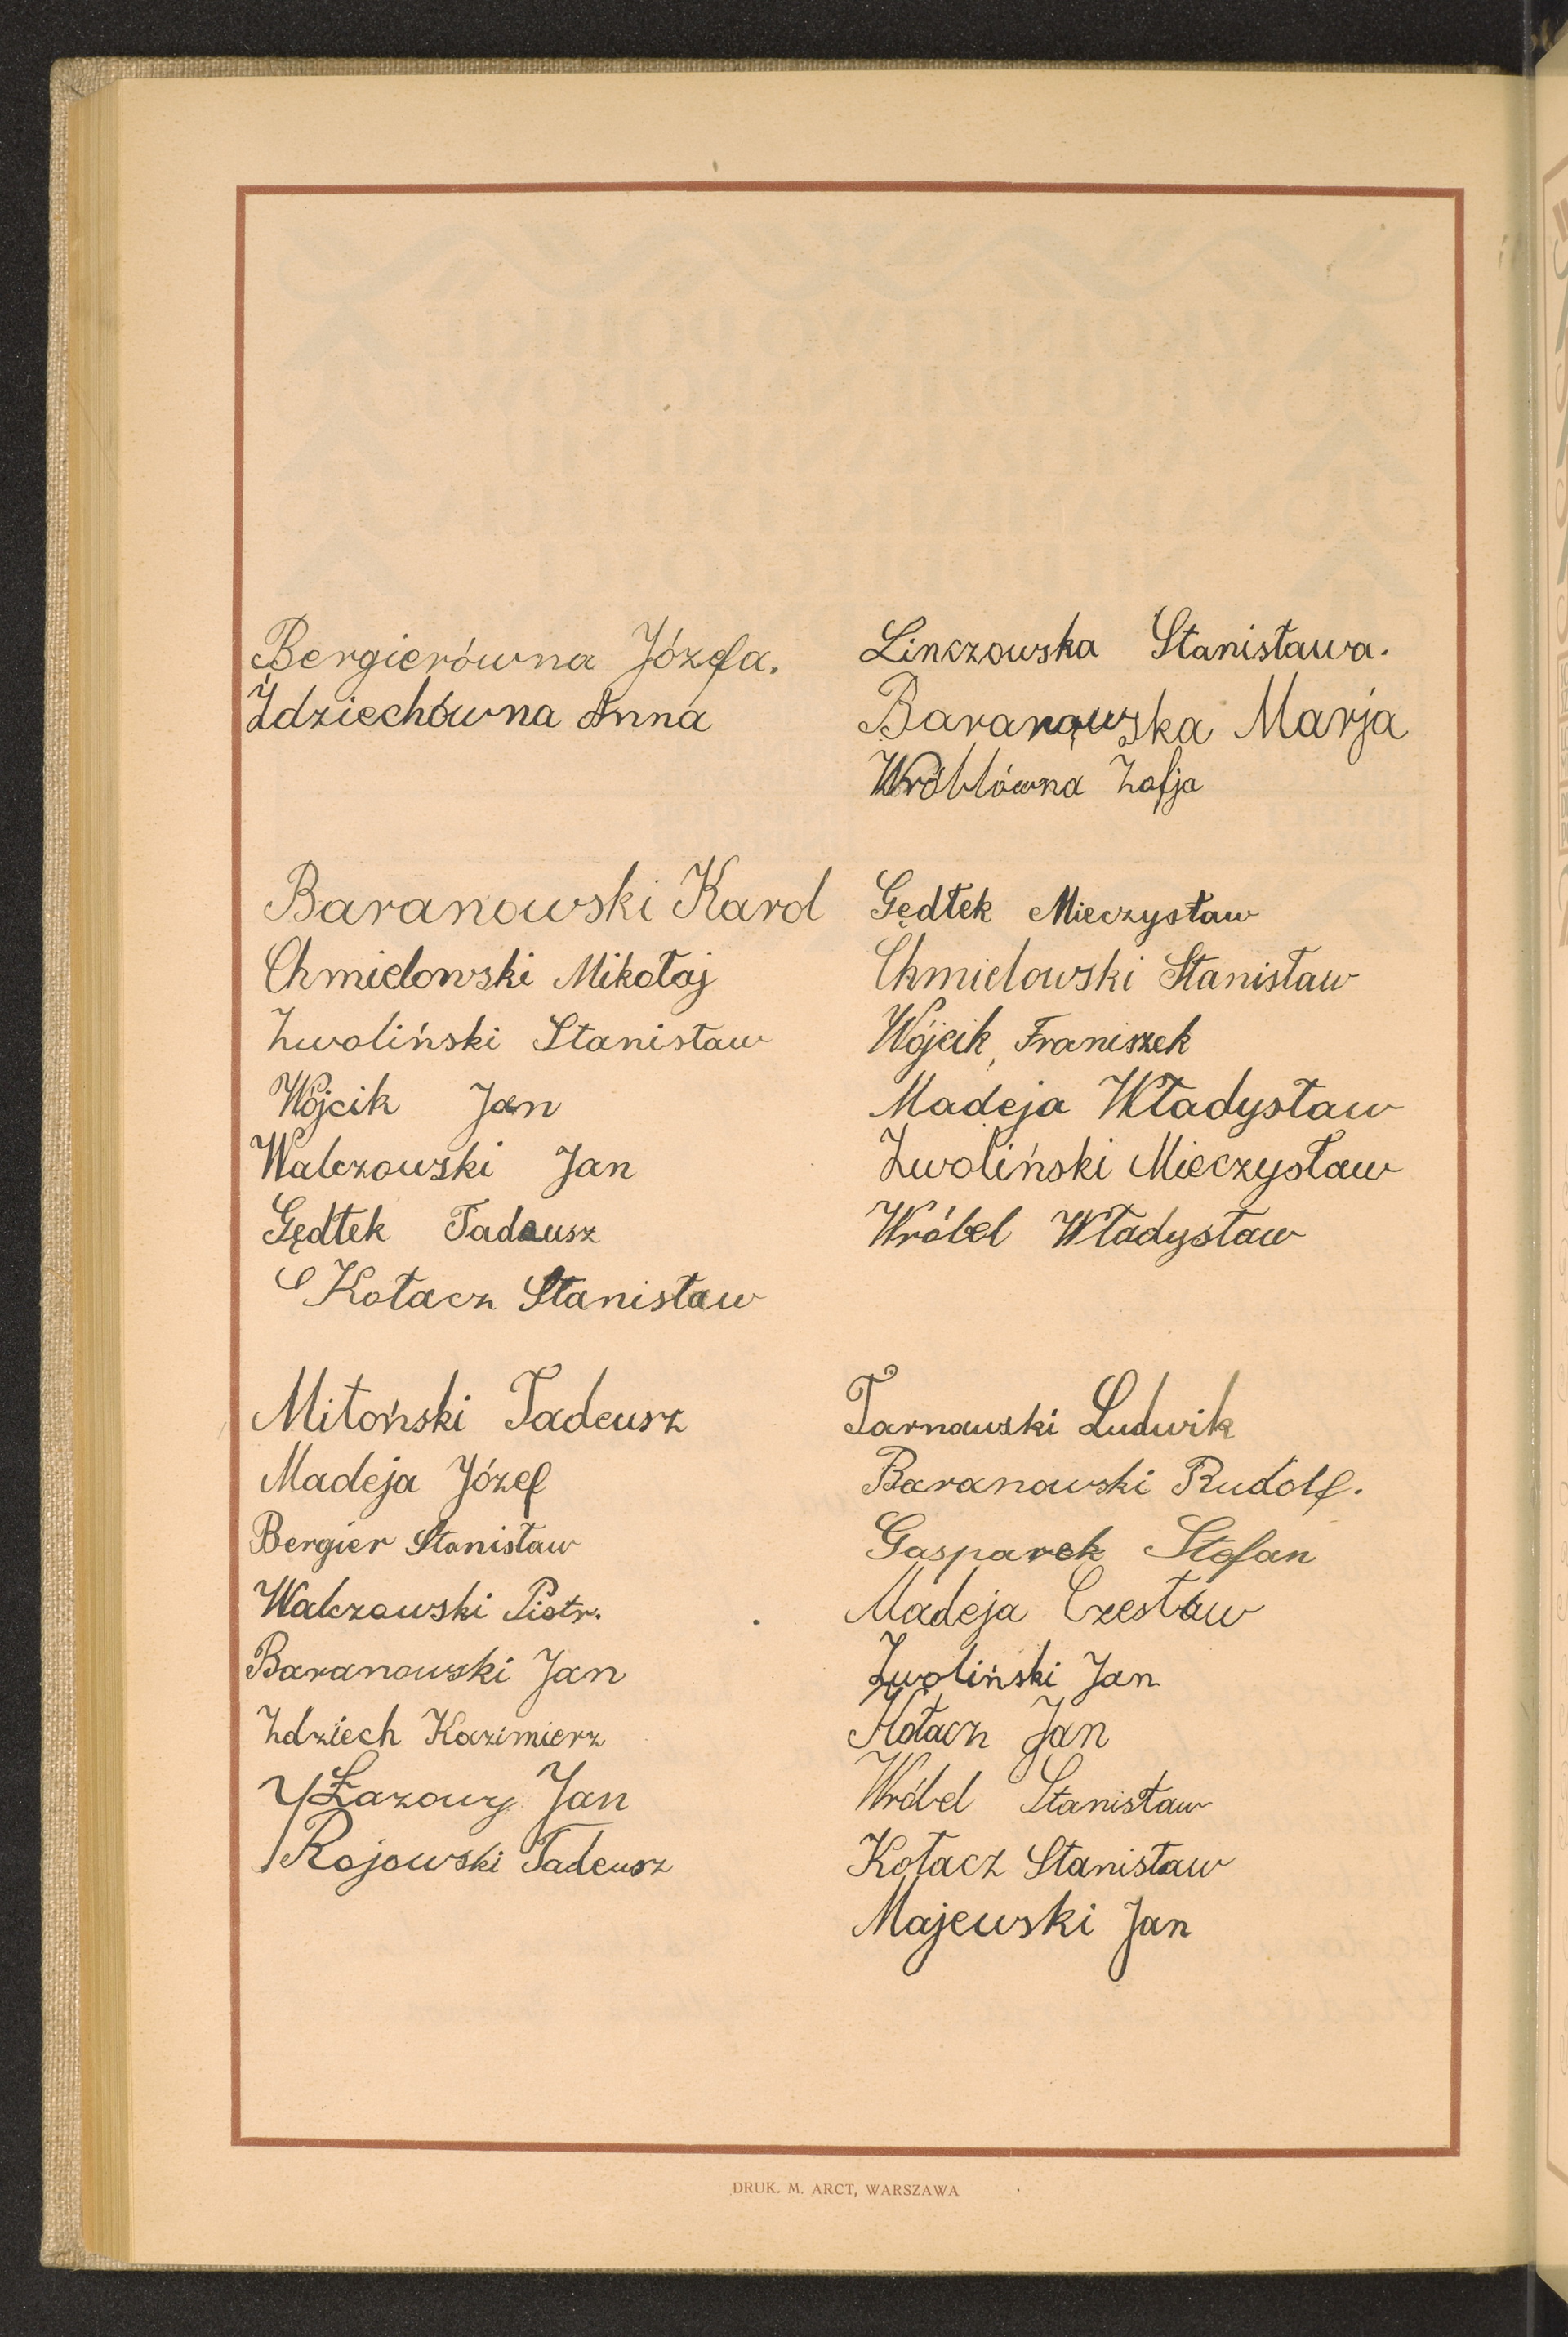 Bergierówna Józefa.
Żdziechówna Anna
Linczowska Stanisława.
Baranowska Marja
Wróblówna Zofja
Baranowski Karol
Chmielowski Mikołaj
Zwoliński Stanisław
Wójcik Jan
Walczowski Jan
Gędłek Tadeusz
Kołacz Stanisław
Gędłek Mieczysław
Chmielowski Stanisław
Wójcik, Franiszek
Madeja Władysław
Zwoliński Mieczysław
Wróbel Władysław
Mitoński Tadeusz
Madeja Józef
Bergier Stanisław
Walczowski Piotr.
Baranowski Jan
Zdziech Kazimierz
Łazowy Jan
Rojowski Tadeusz
Tarnawski Ludwik
Baranowski Rudolf.
Gasparek Stefan
Madeja Czesław
Zwoliński Jan
Kołacz Jan
Wróbel Stanisław
Kołacz Stanisław
Majewski Jan
DRUK. M. ARCT, WARSZAWA